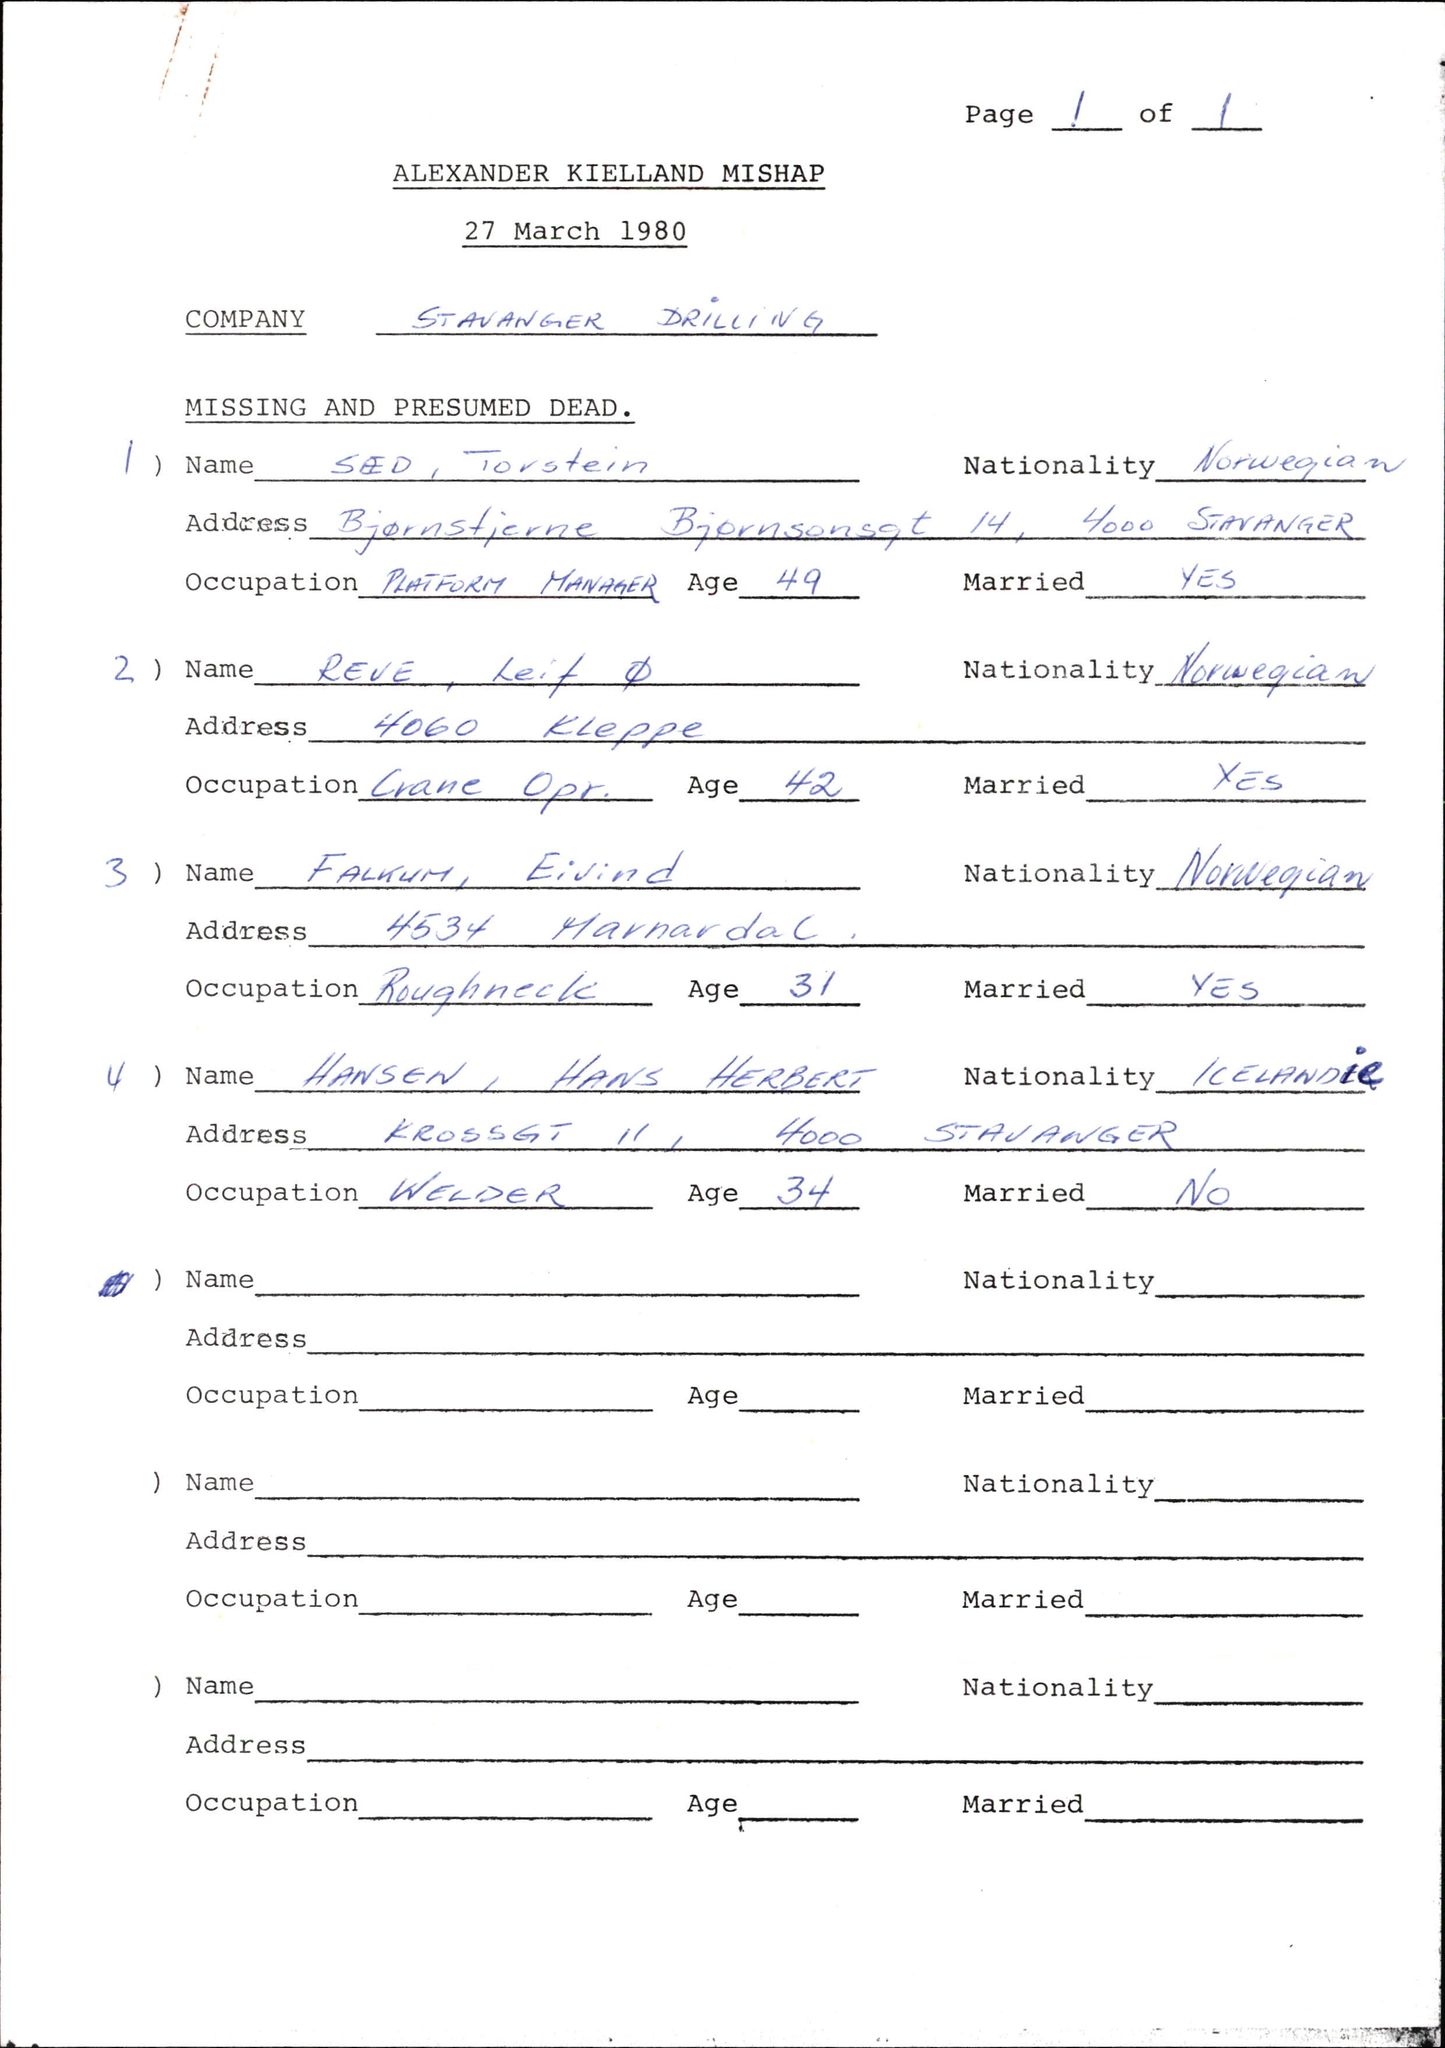 Page 1 of 1
ALEXANDER KIELLAND MISHAP
27 March 1980
COMPANY STAVANGER DRILLING
MISSING AND PRESUMED DEAD.
1 ) Name SÆD, Torstein Nationality Norwegian
Address Bjørnstjerne Bjørnsonsgt 14, 4000 STAVANGER
Occupation PLATFORM MANAGER Age 49 Married YES
2 ) Name REVE, Leif Ø Nationality Norwegian
Address 4060 Kleppe
Occupation Crane Opr. Age 42 Married YES
3 ) Name FALKUM, Eivind Nationality Norwegian
Address 4534 Marnardal.
Occupation Roughneck Age 31 Married YES
4 ) Name HANSEN, HANS HERBERT Nationality ICELANDic
Address KROSSGT 11, 4000 STAVANGER
Occupation WELDER Age 34 Married NO
) Name Nationality
Address
Occupation Age Married
) Name Nationality
Address
Occupation Age Married
) Name Nationality
Address
Occupation Age Married